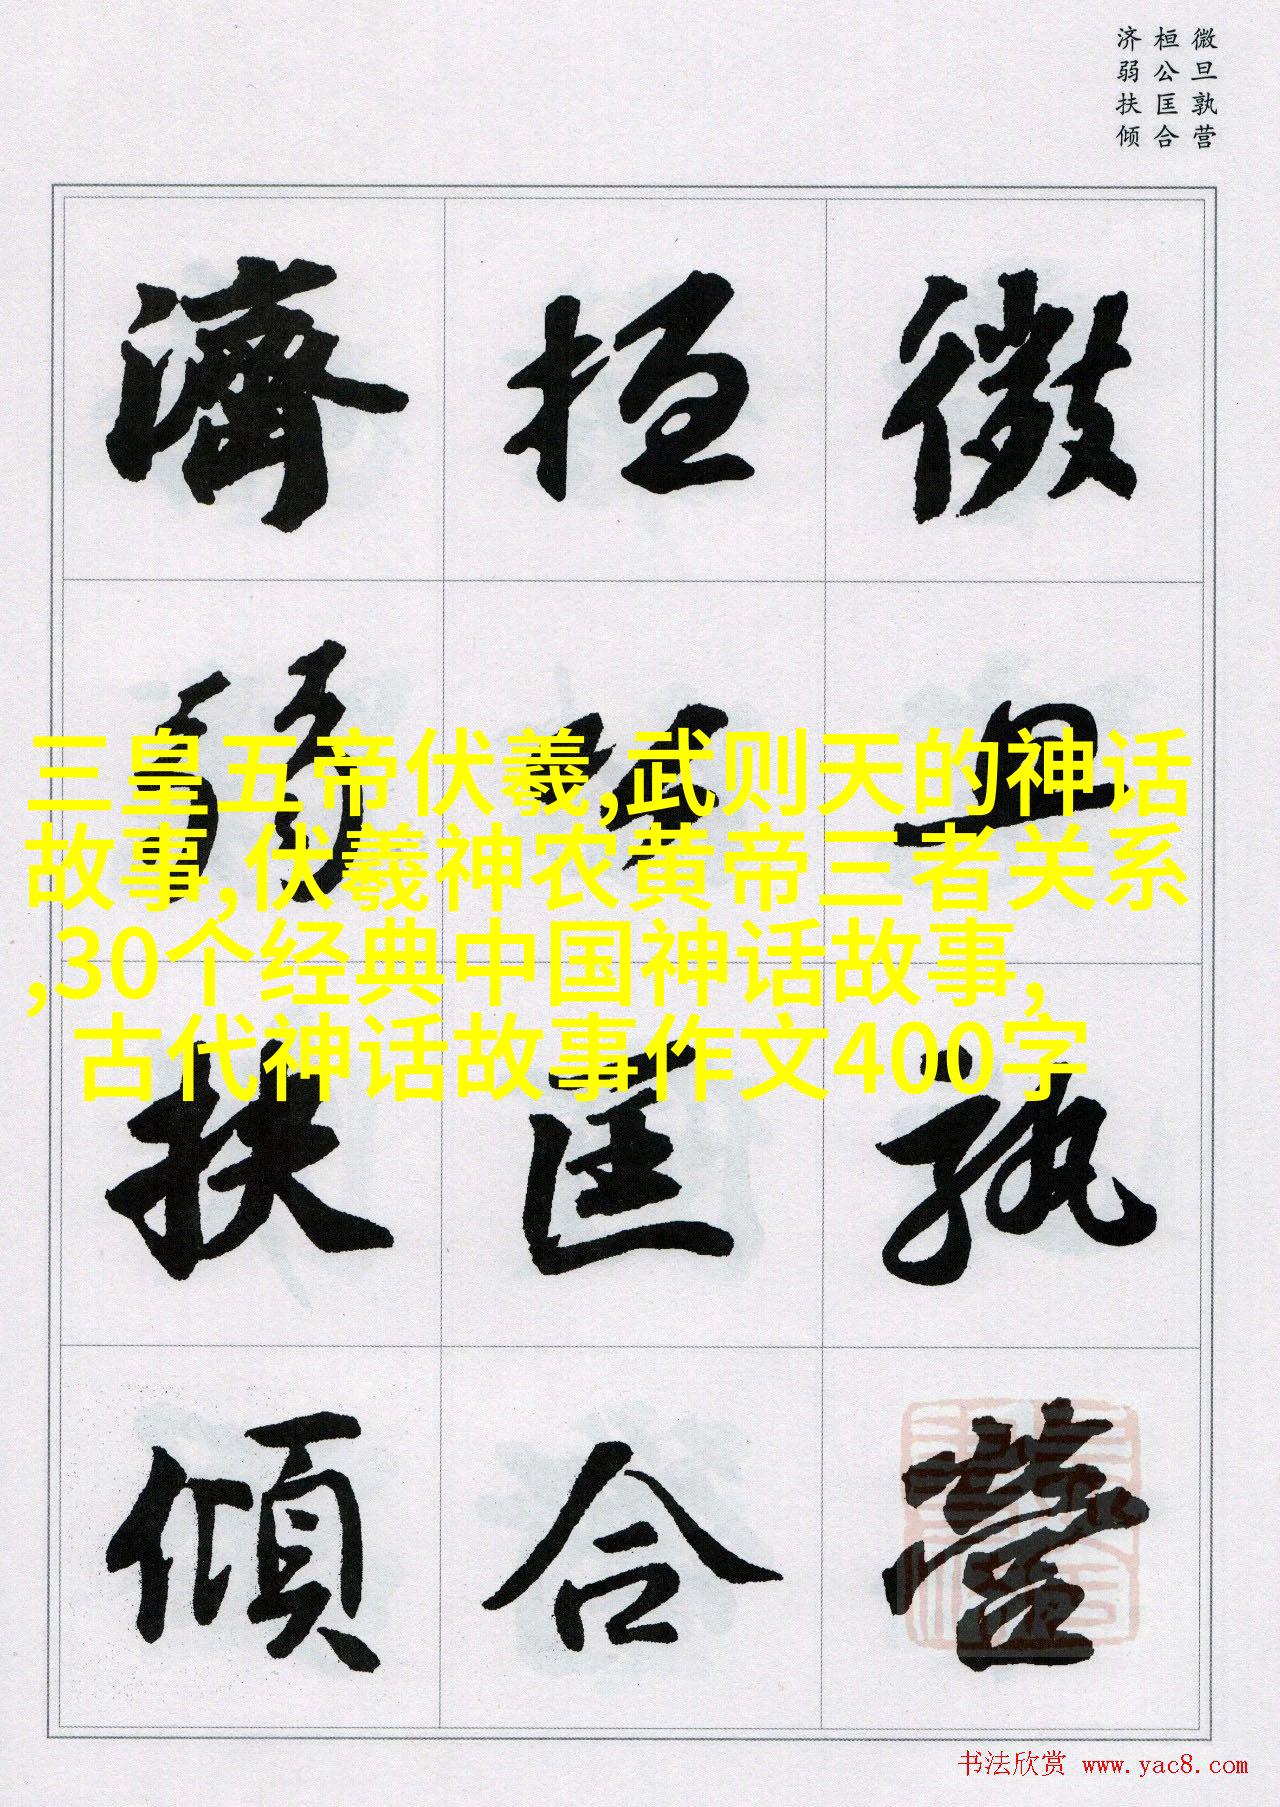 微旦孰营
桓公匡合
济弱扶倾
微旦孰營
桓公匡合
濟弱扶傾
三皇五帝伏羲,武则天的神话
故事,伏羲神农黄帝三者关系
,30个经典中国神话故事,
古代神话故事作文400字
书法欣赏 www.yac8.com